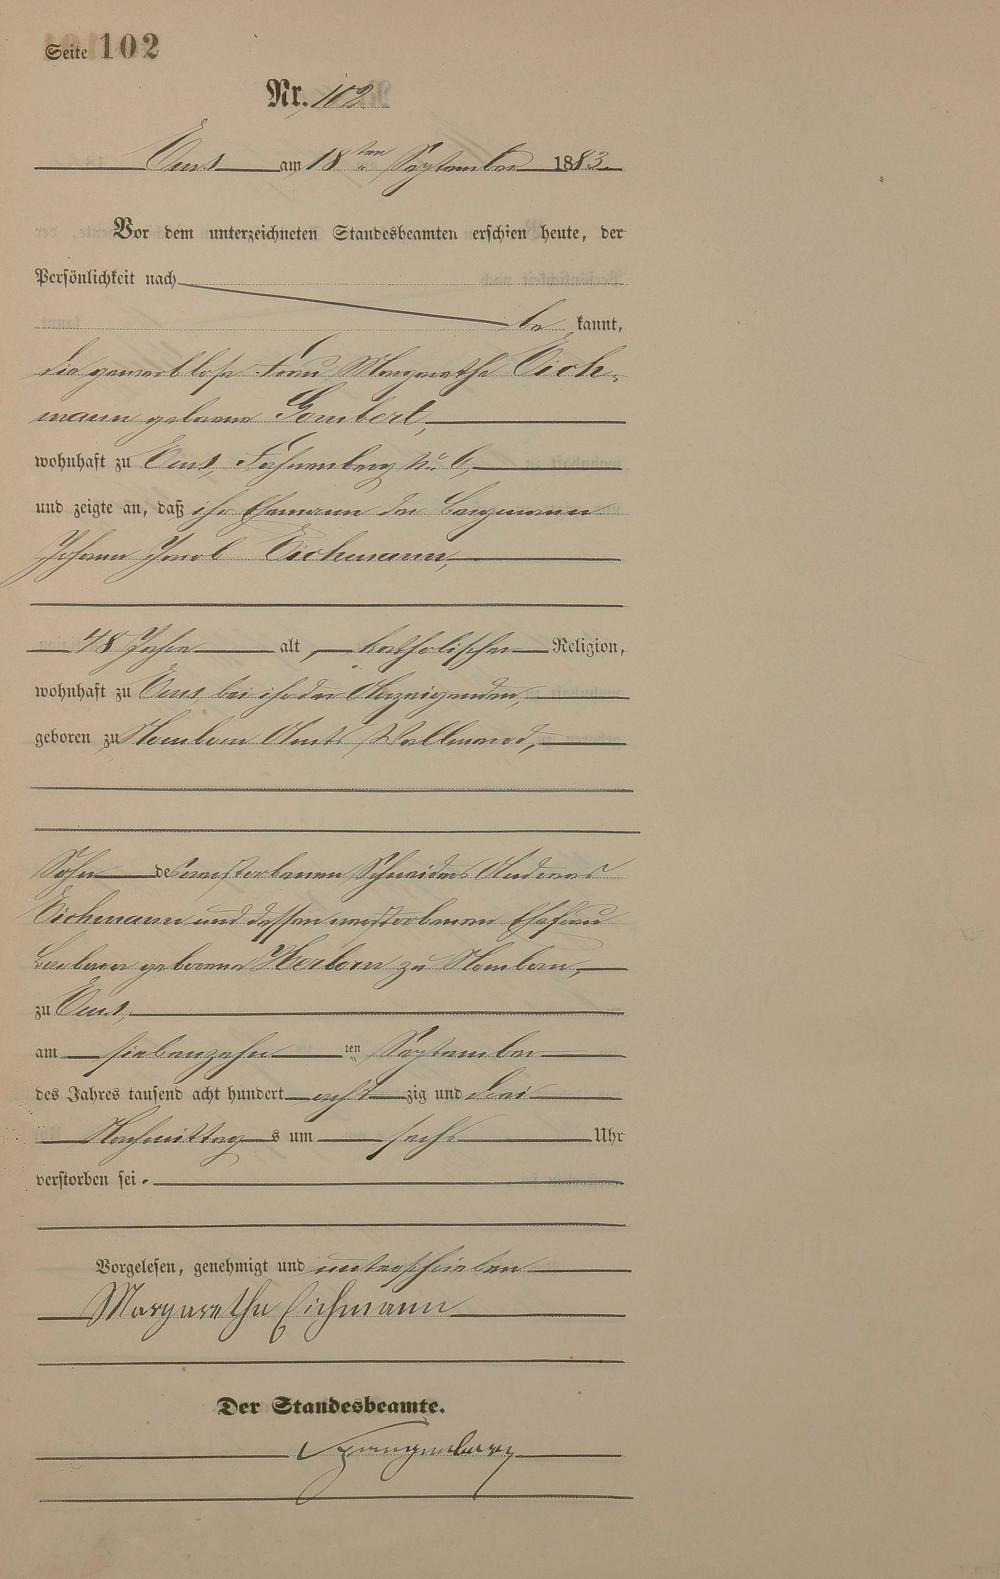 Seite 102
Nr. 102
Ems am 18ten September 1883.
Vor dem unterzeichneten Standesbeamten erschien heute, der
Persönlichkeit nach
be kannt,
die gewerblose Frau Margarethe Eich-
mann geborene Gombert,
wohnhaft zu Ems, Fahnenberg No. 6,
und zeigte an, daß ihr Ehemann der Bergmann
Johann Jacob Eichmann,
48 Jahre alt, katholischer Religion,
wohnhaft zu Ems, bei ihr der Anzeigenden,
geboren zu Hombern Amts Wallmerod,
Sohn des verstorbenen Schneiders Andreas
Eichmann und dessen verstorbenen Ehefrau
Barbara geborene Herborn zu Hombern,
zu Ems,
am siebenzehn ten September
des Jahres tausend acht hundert acht zig und drei
Nachmittag s um sechs Uhr
verstorben sei.
Vorgelesen, genehmigt und unterschrieben
Margarethe Eichmann
Der Standesbeamte.